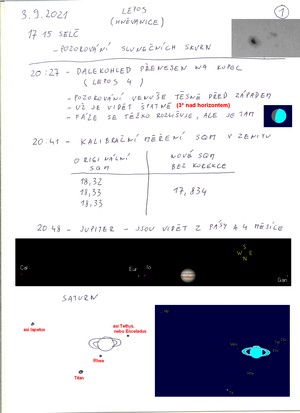 3.9.2021
LELOS
(HNĚVANICE)
1
17 15 SELČ
- POZOROVÁNÍ SLUNEČNÍCH SKVRN
20:27 - DALEKOHLED PŘENESEN NA KUPOL
(LELOS 4)
- POZOROVÁNÍ VENUŠE TĚSNĚ PŘED ZÁPADEM
- UŽ JE VIDĚT ŠPATNĚ (3° nad horizontem)
- FÁZE SE TĚŽKO ROZLIŠUJE, ALE JE TAM
20:41 - KALIBRAČNÍ MĚŘENÍ SQM V ZENITU
ORIGINÁLNÍ SQM
NOVÁ SQM BEZ KOREKCE
18,32
18,33
18,33
17,834
20 48 - JUPITER - JSOU VIDĚT 2 PÁSY A 4 MĚSÍCE
S
W E
N
Cal
Eur
Io
Gan
SATURN
asi Iapetus
asi Tethys,
nebo Enceladus
Rhea
Titan